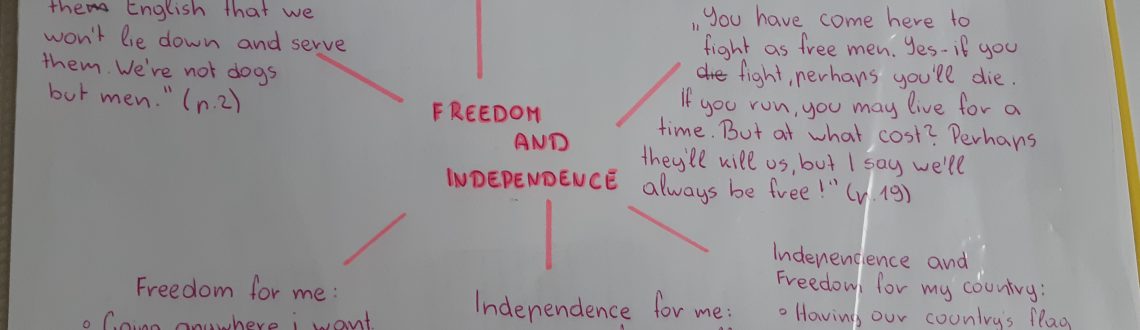 them English that we
won't lie down and serve
them. We're not dogs
but men." (p.2)
„You have come here to
fight as free men. Yes - if you
die fight, perhaps you'll die.
If you run, you may live for a
time. But at what cost? Perhaps
they'll kill us, but I say we'll
always be free!" (p.19)
FREEDOM
AND
INDEPENDENCE
Freedom for me:
• Going anywhere i want
Independence for me:
Independence and
Freedom for my country:
• Having our country's flag